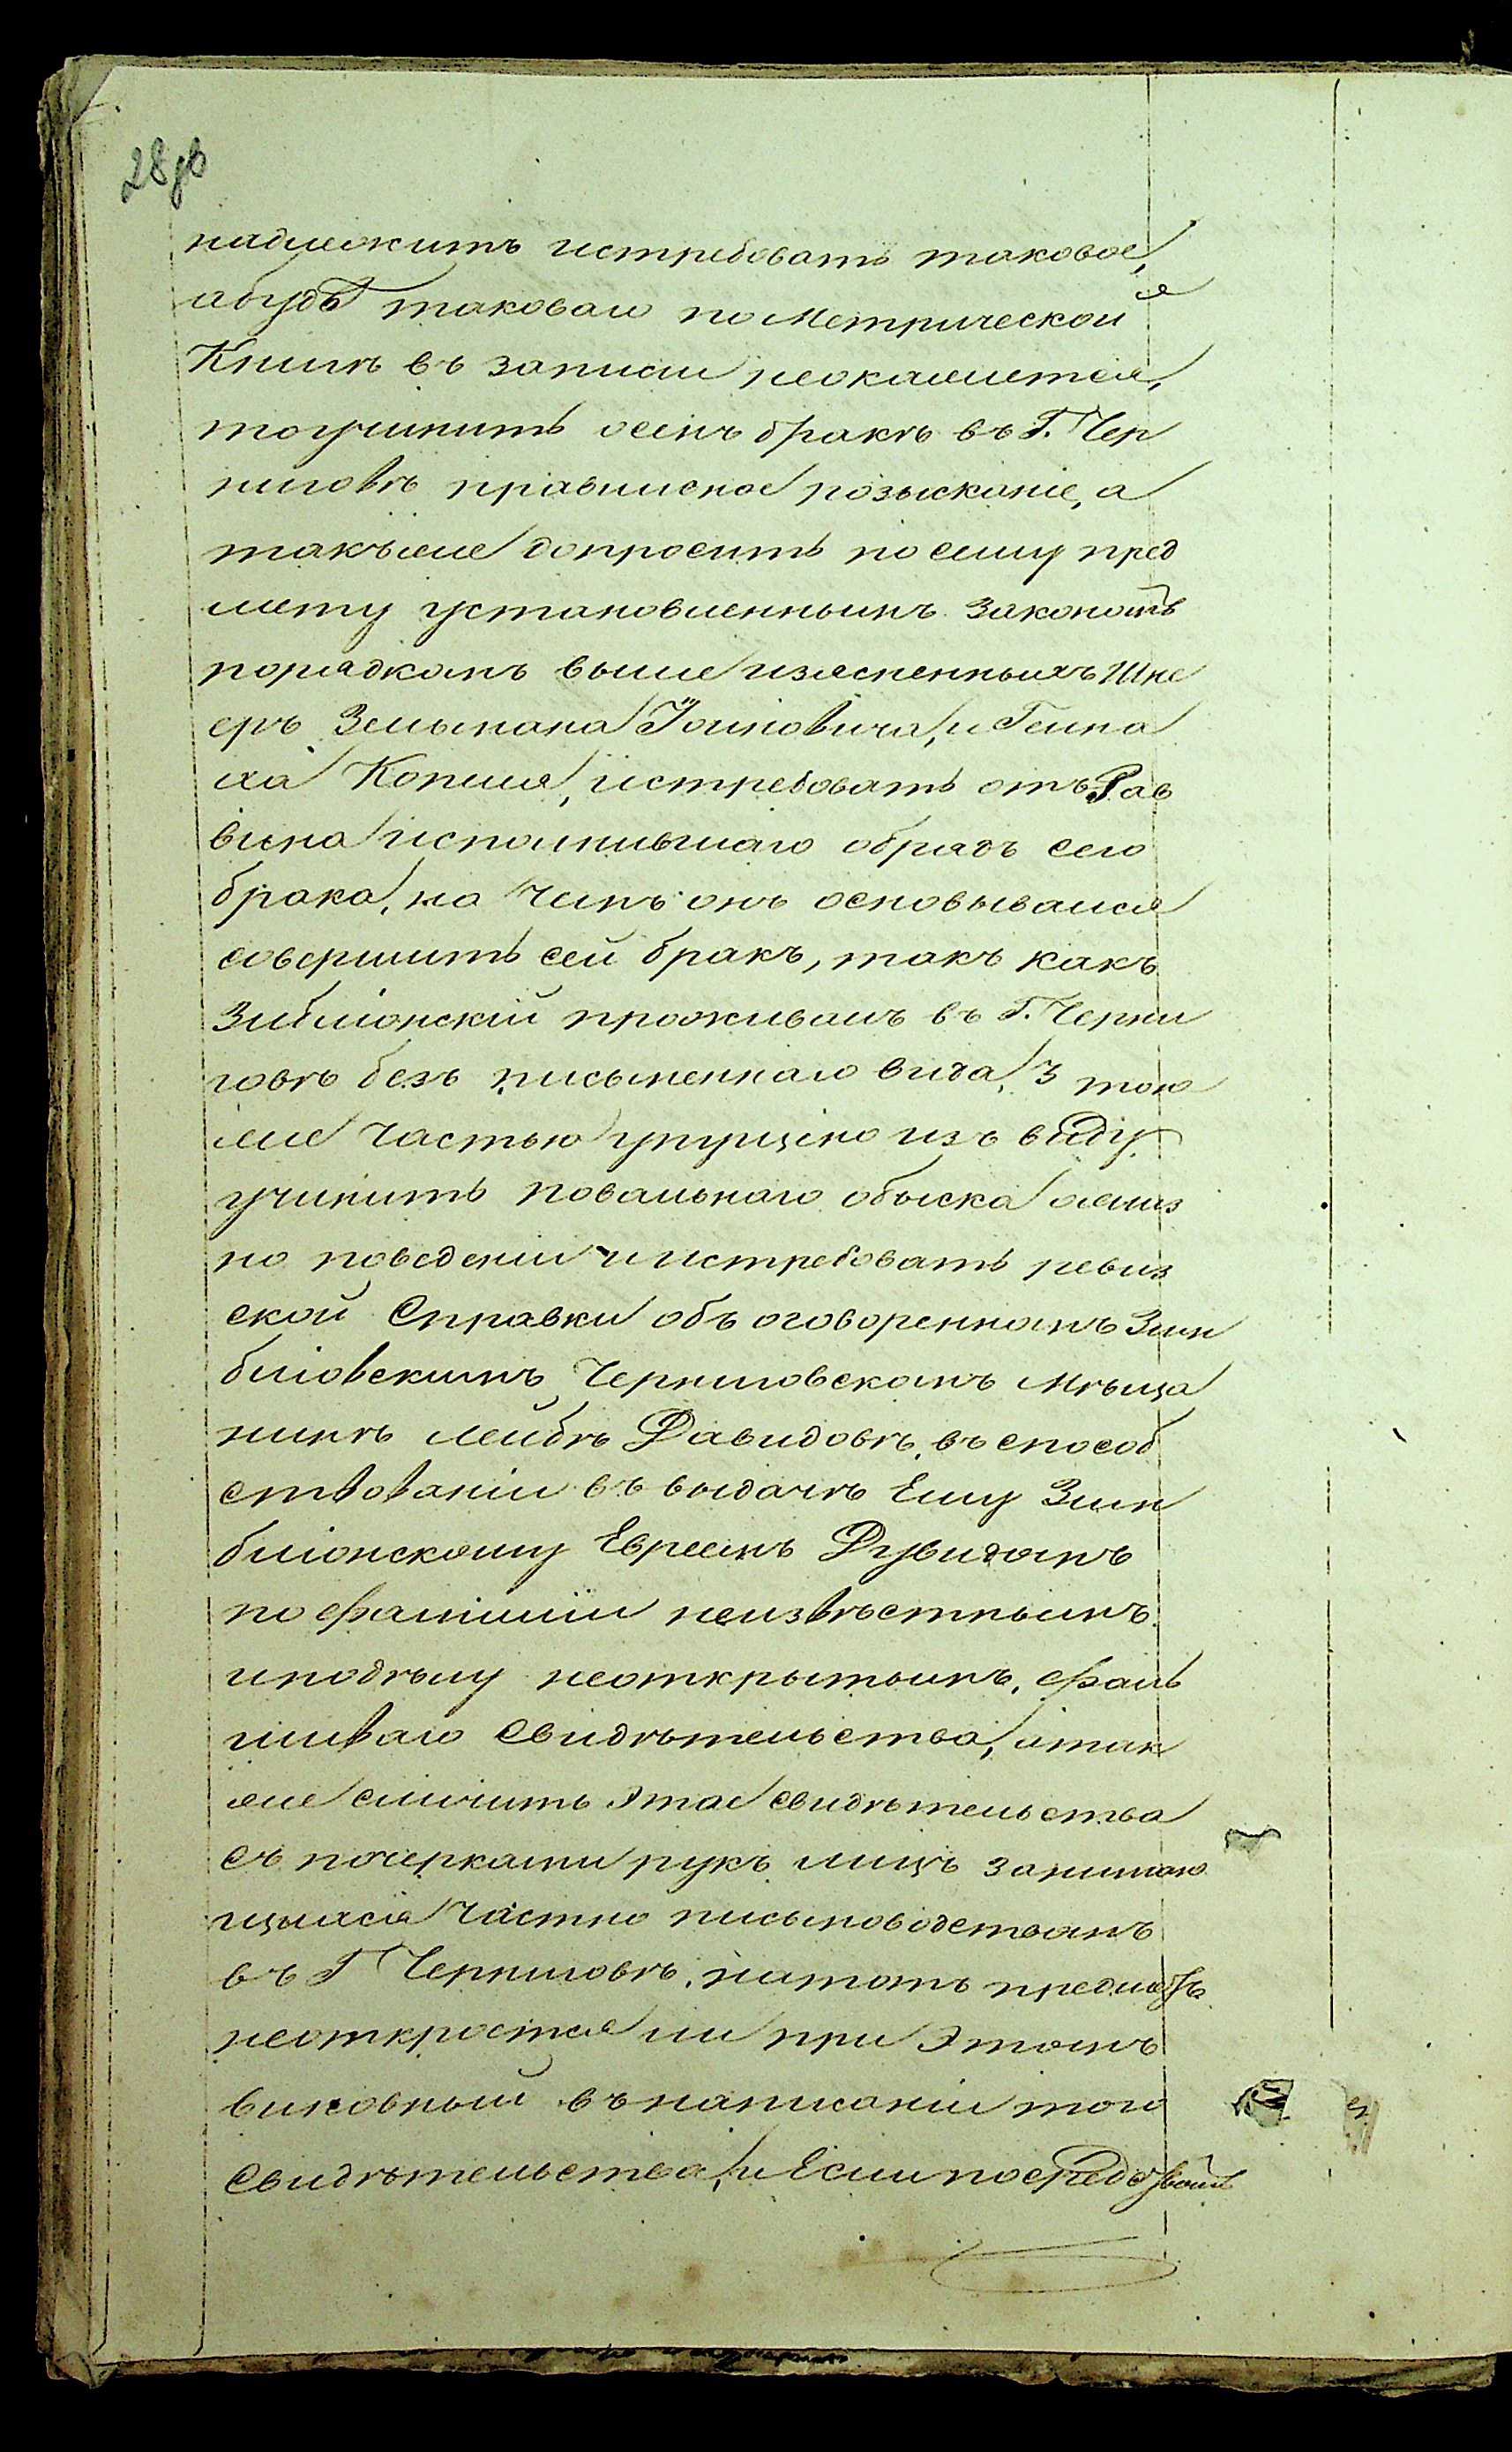 28 об
надлежитъ истребовать таковое,
абудѣ таковаго по Метрической
Книгѣ въ записи неокажется,
тоучинить осемъ бракѣ въ Г. Чер
ниговѣ правильное розысканіе, а
такъже допросить по сему пред
мету установленнымъ закономъ
порядкомъ выше изясненныхъ Шне
еръ Зельмана Іоиновича, и Генна
ха Копеля, истребовать отъ Рав
вина исполнившаго обрядъ сего
брака, на чемъ онъ основывался
совершить сей бракъ, такъ какъ
Зибліонскій проживалъ въ Г. Черни
говѣ безъ письменнаго вида, 3 тою
же частью упущено изъ виду
учинить повальнаго обыска ожиз
но поведеніи и истребовать ревиз
ской Справки объ оговоренномъ Зин
бліовскимъ Черниговскомъ Мѣща
нинѣ Лейбѣ Давидовѣ, въ способ
ствованіи въ выдачѣ Ему Зин
бліонскому Евреемъ Дувидомъ
по фамиліи неизвѣстнымъ
иподѣлу неоткрытымъ, фаль
шиваго Свидѣтельства, атак
же сличить Этае свидѣтельства
съ почерками рукъ лицъ занимаю
щыхся частно письмоводствомъ
въ Г Черниговѣ, натотъ предметъ
неоткроется ли при Этомъ
виновный въ написаніи того
Свидѣтельства, и Если посредством